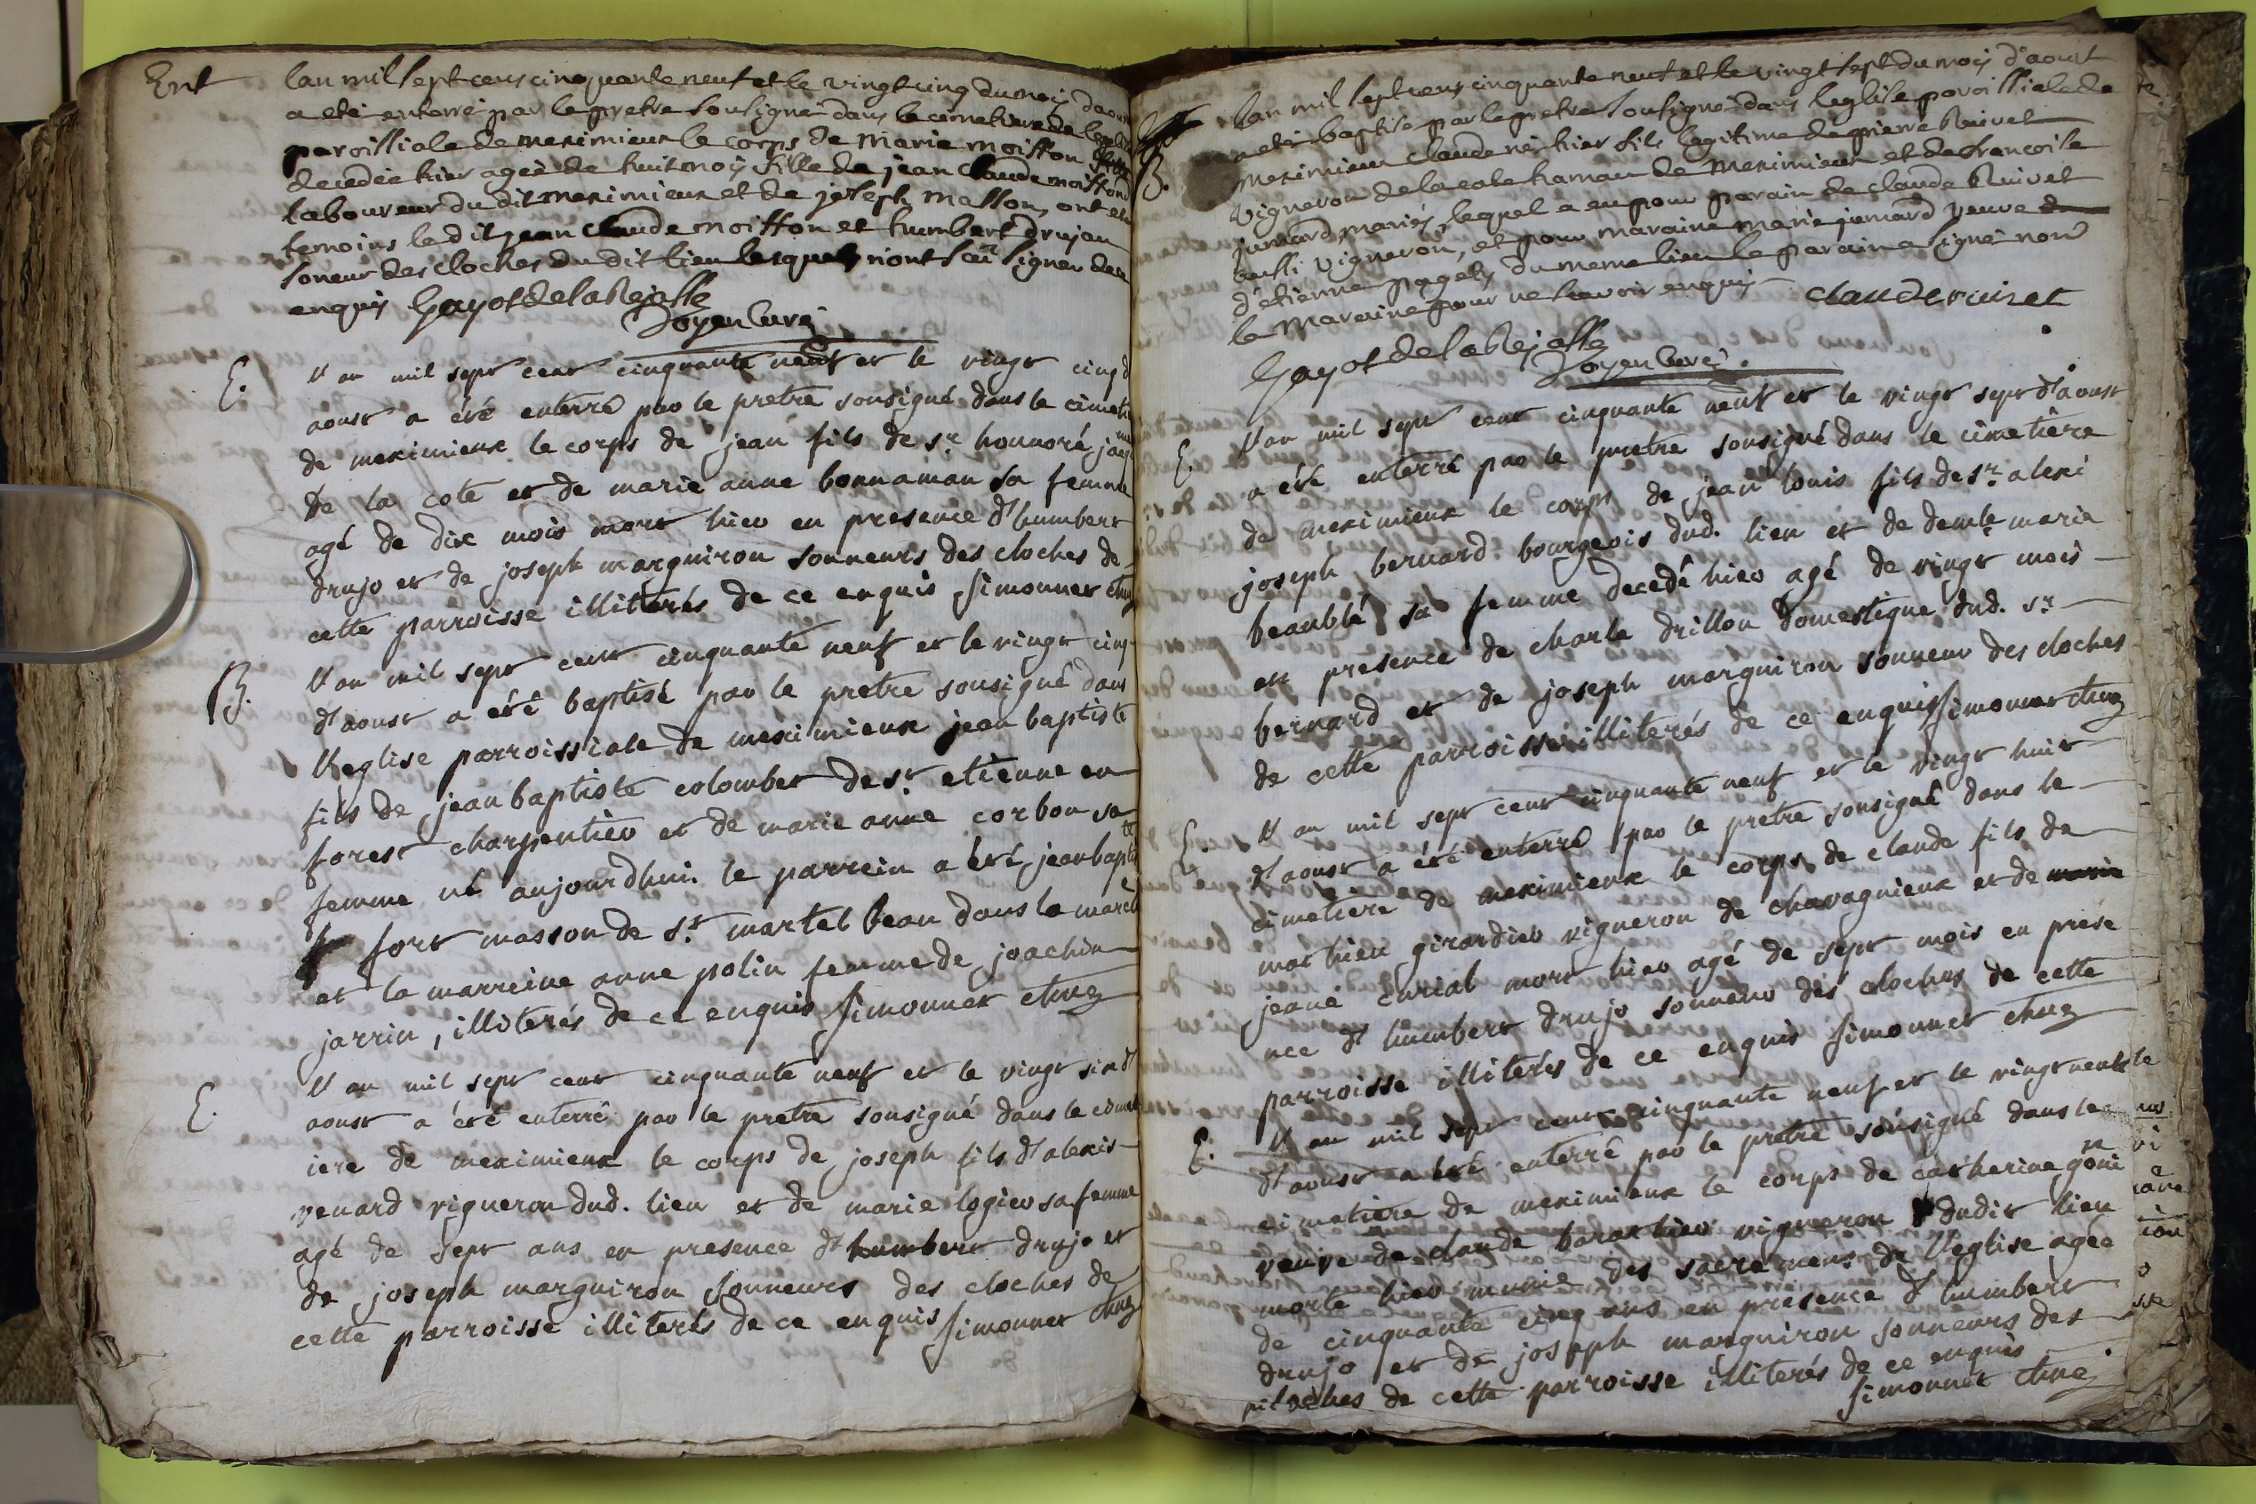 Ent
lan mil sept cens cinquante neuf et le vingt cinq du mois daout
a eté enterré par le pretre sousigné dans le cimetiere de leglise
paroissiale de meximieux le corps de marie moisson
decedée hier ageé de huit mois fille de jean claude moisson
laboureur du dit meximieux et de joseph masson, ont eté
temoins le dit jean claude moisson et humbert drujon
soneur des cloches du dit lieu lesquels n'ont sçu signer de ce
enquis Gayot de la Rejasse
Doyen Curé
E.
l'an mil sept cent cinquante neuf et le vingt cinq d
aoust a été enterré par le pretre sousigné dans le cimeti
de meximieux le corps de jean fils de sr. honnoré
de la cote et de marie anne bonnaman sa femme
agé de dix mois mort hier en presence d'humbert
drujo et de joseph marguiron sonneurs des cloches de
cette parroisse illiterés de ce enquis Simonnet
B.
l'an mil sept cent cinquante neuf et le vingt cinq
d'aoust a été baptisé par le pretre sousigné dans
l'eglise parroissiale de meximieux jean baptiste
fils de jean baptiste colombet de st. etienne en
forest charpentier et de marie anne corbon sa
femme né aujourdhui. le parrein a été jean baptte
fort masson de st. martel beau dans la march
et la marreine anne polin femme de joachin
jarrin, illiterés de ce enquis Simonnet
E.
l'an mil sept cent cinquante neuf et le vingt six d'
aoust a été enterré par le pretre sousigné dans le cimet
iere de meximieux le corps de joseph fils d'alexis
renard vigneron dud. lieu et de marie logier sa femme
agé de sept ans en presence d'humbert drujo et
de joseph marguiron sonneurs des cloches de
cette parroisse illiterés de ce enquis Simonnet
B.
lan mil sept cens cinquante neuf et le vingt sept du mois d'aout
a eté baptisé par le pretre sousigné dans leglise paroissiale de
meximieux claude né hier fils legitime de pierre Ruivet
vigneron de la cote hamau de meximieux et de francoise
jumard mariés, lequel a eu pour parain de claude Ruivet
aussi vigneron, et pour maraine marie jumard veuve
d'etienne pagets du meme lieu le parain a signé non
la Maraine pour ne savoir enquis
claude ruivet
Gayot de la Rejasse
Doyen Curé.
E.
l'an mil sept cent cinquante neuf et le vingt sept d'aoust
a été enterré par le pretre sousigné dans le cimetiere
de meximieux le corps de jean louis fils de sr. alexi
joseph bernard bourgeois dud. lieu et de demlle marie
beaublé sa femme decedé hier agé de vingt mois
en presence de charle drillon domestique dud. sr.
bernard et de joseph marguiron sonneur des cloches
de cette parroisse illiterés de ce enquis Simonnet
E.
l'an mil sept cent cinquante neuf et le vingt huit
d'aoust a été enterré par le pretre sousigné dans le
cimetiere de meximieux le corps de claude fils de
mathieu girardier vigneron de chavagnieux et de marie
jeane curial mort hier agé de sept mois en prése
nce d'humbert drujo sonneur des cloches de cette
parroisse illiterés de ce enquis Simonnet
E.
l'an mil sept cent cinquante neuf et le vingt neuf
d'aoust a été enterré par le pretre sousigné dans le
cimetiere de meximieux le corps de catherine
veuve de claude barathier vigneron dudit lieu
morte hier munie des sacremens de l'eglise agée
de cinquante cinq ans en presence d'humbert
drujo et de joseph marguiron sonneurs des
cloches de cette parroisse illiterés de ce enquis
Simonnet